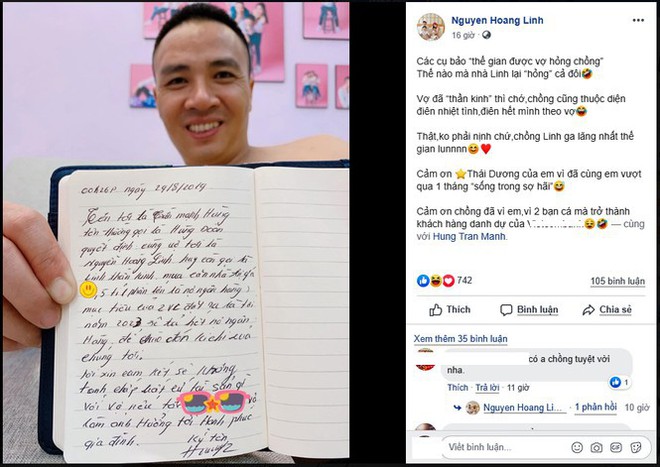 00h26p ngày 29/8/2019
Tôi là Trần Mạnh Hùng
tên thường gọi là Hùng
quyết định cùng vợ tôi là
Nguyễn Hoàng Linh hay còn gọi là
Linh thần kinh mua căn nhà
,5 tỉ phần lớn là nợ ngân hàng
mục tiêu của 2VC đặt ra là tới
năm 2023 sẽ trả hết nợ ngân
hàng, để
chúng tôi.
tôi xin cam kết sẽ không
tranh chấp bất cứ tài sản gì
với vợ nếu tôi
làm ảnh hưởng tới hạnh phúc
gia đình.
Ký tên
Hùng
Nguyen Hoang Linh
16 giờ ·
Các cụ bảo "thế gian được vợ hỏng chồng"
Thế nào mà nhà Linh lại "hỏng" cả đôi🤣
Vợ đã "thần kinh" thì chớ,chồng cũng thuộc diện
điên nhiệt tình,điên hết mình theo vợ😆
Thật,ko phải nịnh chứ,chồng Linh ga lăng nhất thế
gian lunnnn😆❤️
Cảm ơn ⭐Thái Dương của em vì đã cùng em vượt
qua 1 tháng "sống trong sợ hãi"😅
Cảm ơn chồng đã vì em,vì 2 bạn cá mà trở thành
khách hàng danh dự của 😝🤣 — cùng
với Hung Tran Manh.
742
105 bình luận
Thích
Bình luận
Chia sẻ
Xem thêm 35 bình luận
có a chồng tuyệt vời
nha.
1
Thích · Trả lời · 11 giờ
Nguyen Hoang Lin... · 1 phản hồi 10 giờ
Viết bình luận...